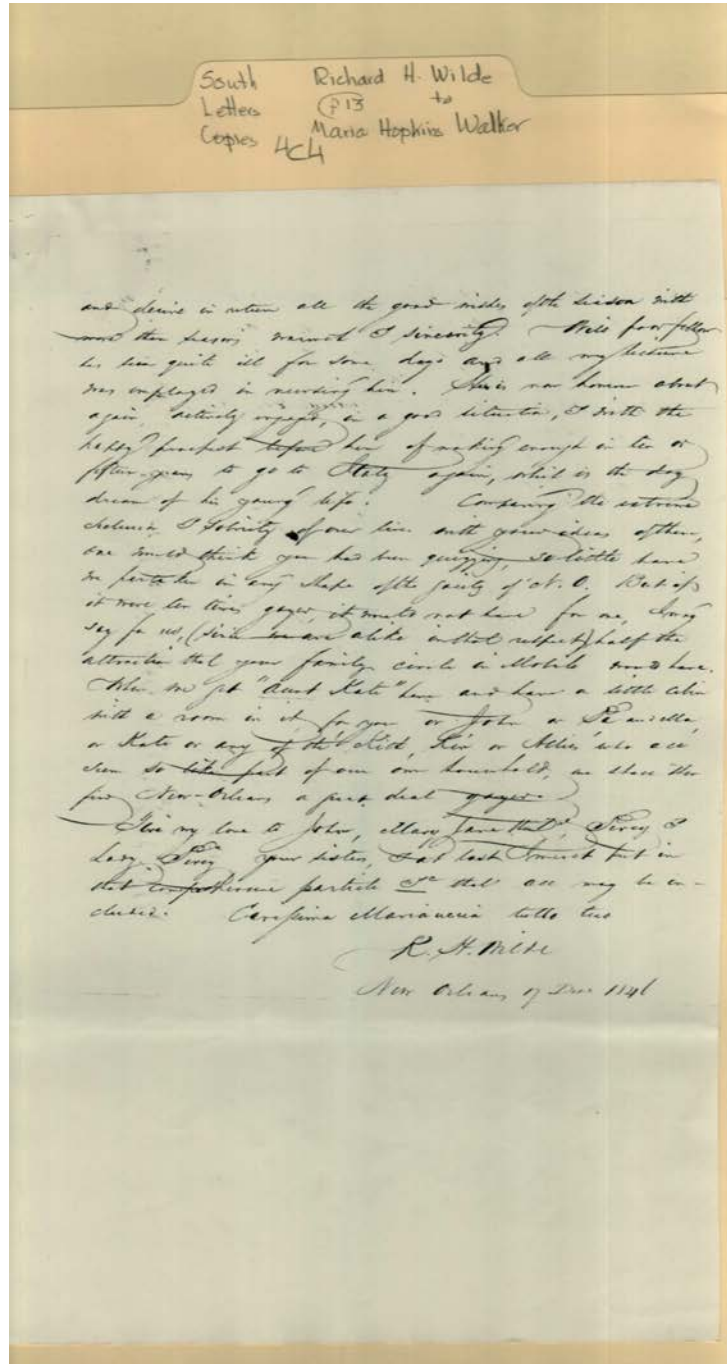 South Richard H. Wilde
Letters P13 to
Copies Maria Hopkins Walker
4C4
and desire in return all the good wishes of the season with
more than season's warmest & sincerity. Will poor fellow
has been quite ill for some days and all my leisure
was employed in nursing him. He is now however about
again, actively engaged, in a good situation, & with the
happy prospect before him of making enough in ten or
fifteen years to go to Italy again, which is the day
dream of his young life. Comparing the extreme
& sobriety of our lives with your ideas of them,
one would think you had been quizzing, so little have
we partaken in any shape of the gaiety of N. O. But if
it were ten times gayer, it would not have for me, I may
say for us, (since we are alike in that respect) half the
attraction that your family circle in Mobile would have.
When we get "Aunt Kate" here and have a little cabin
with a room in it for you or John or
or Kate or any of the Kith, Kin or Allies who all
seem so like part of our own household, we shall then
find New-Orleans a great deal gayer.
Give my love to John, Mary Jane Percy &
Lady Percy your sisters, & at last I must put in
that comprehensive particle &c that all may be in-
cluded. Carissima tutto tuo
R. H. Wilde
New Orleans 17 Dec 1846